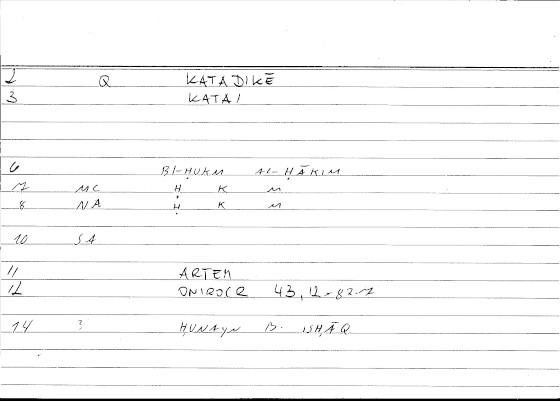 2 Q KATADIKĒ
3 KATAI
6 BI-ḤUKM AL-ḤĀKIM
7 MC Ḥ K M
8 NA Ḥ K M
10 SA
11 ARTEM
12 ONIROCR 43, 12-82-7
14 ? ḤUNAYN B. ISḤĀQ